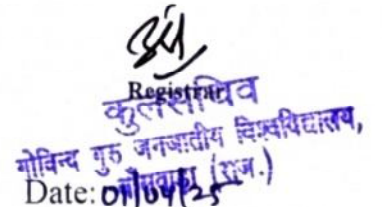 Registrar
कुलसचिव
गोविन्द गुरु जनजातीय विश्वविद्यालय,
बाँसवाड़ा (राज.)
Date: 01/04/25